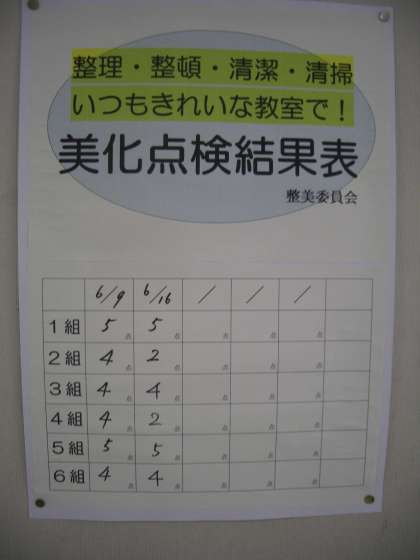 整理・整頓・清潔・清掃
いつもきれいな教室で！
美化点検結果表
整美委員会
6/9 6/16 / / /
1組 5点 5点 点 点 点
2組 4点 2点 点 点 点
3組 4点 4点 点 点 点
4組 4点 2点 点 点 点
5組 5点 5点 点 点 点
6組 4点 4点 点 点 点